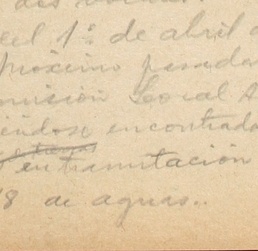 el 1º de abril
próximo pasado
omisión Local A
iéndose encontrado
en tramitación
8 de aguas..